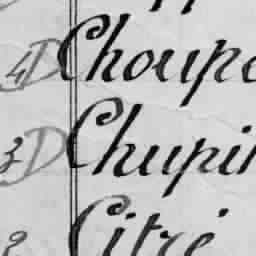 4 D Choupe
3 D Chupin
2 Citré